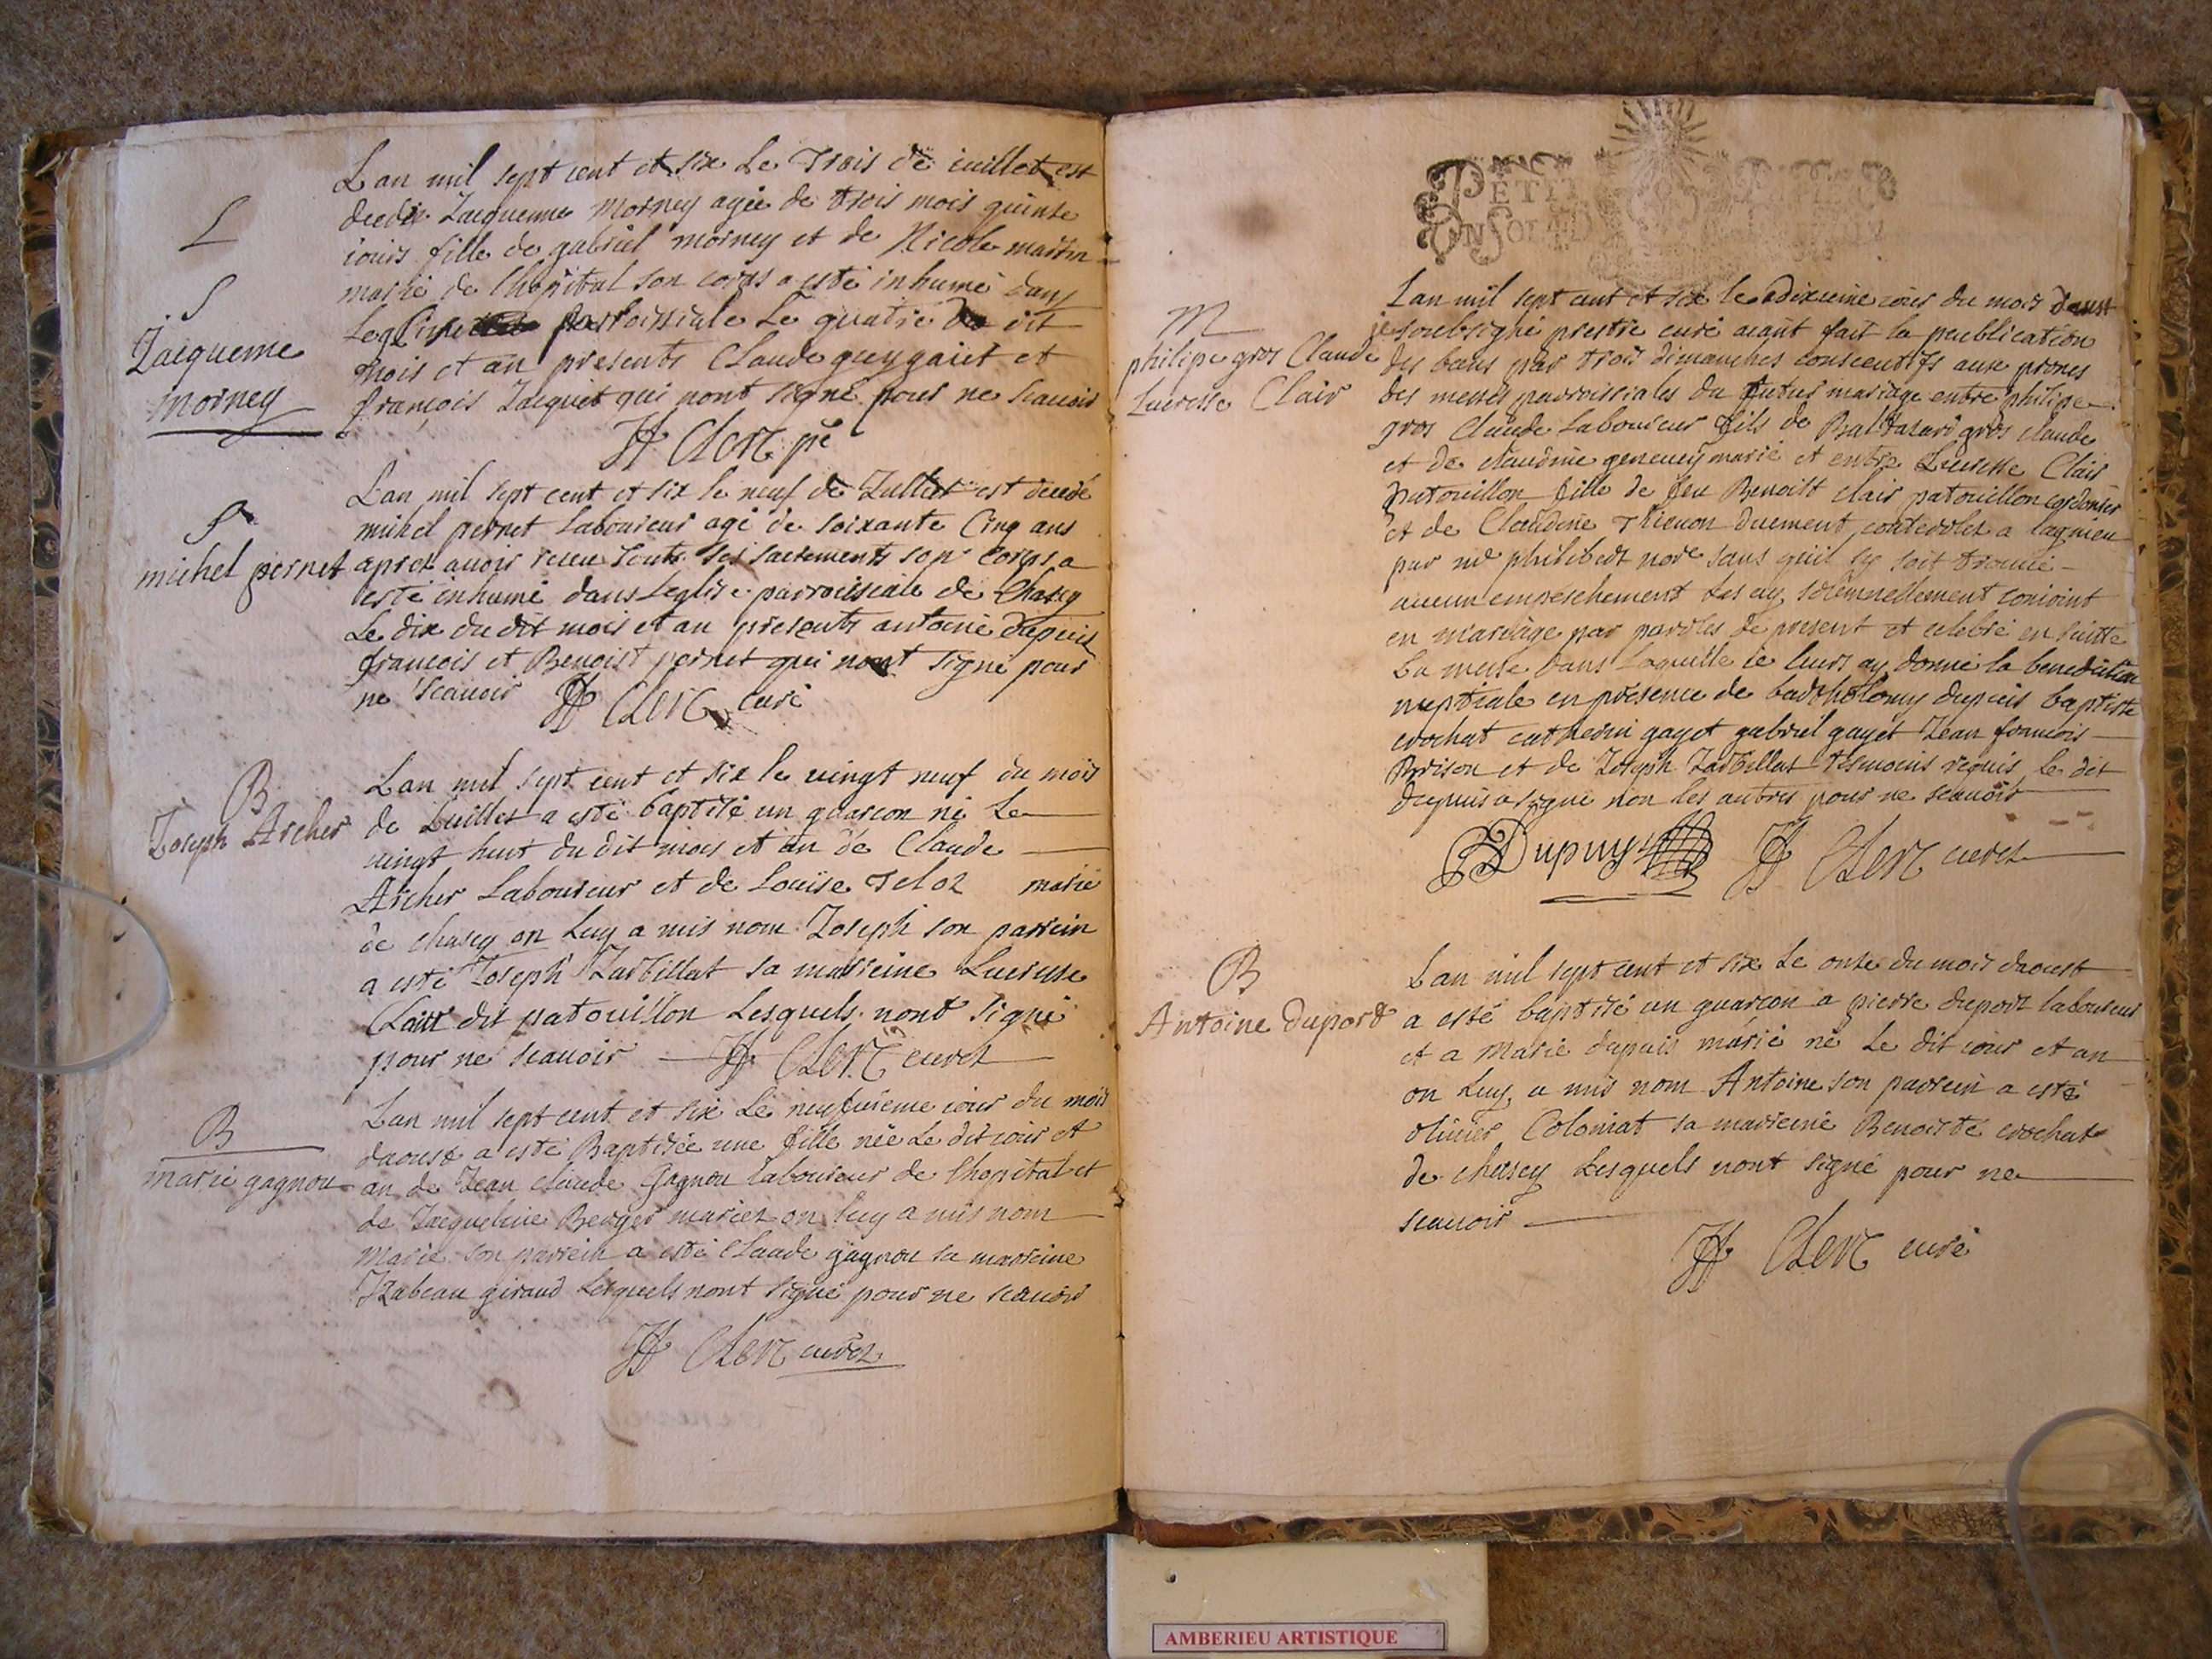 L
S
Jacqueme
morney
Lan mil sept cent et six Le Trois de iuillet est
decede Jacqueme morney agée de trois mois quinse
iours fille de gabriel morney et de Nicole martin
marié de lhopital son corps a esté inhumé dans
leglise parroissiale Le quatre du dit
mois et an presents Claude guygaiet et
françois Jacquet qui nont signé pour ne scauoir
Clerc pre
S
michel pernet
Lan mil sept cent et six le neuf de Jullet est decedé
michel pernet Laboureur agé de soixante Cinq ans
apres auoir receu touts ses sacrements son corps a
esté inhumé dans Leglise parroissiale de Chasey
Le dix du dit mois et an presents antoine dupuis
francois et Benoist pernet qui nont signé pour
ne scauoir Clerc curé
B
Joseph Archer
Lan mil sept cent et six le uingt neuf du mois
de Iuillet a esté baptisé un guarcon né Le
uingt huit du dit mois et an de Claude
Archer Laboureur et de Louise Teloz marié
de chasey on Luy a mis nom Joseph son parrein
a esté Joseph Jarbillat sa marreine Lucresse
Clair dit patouillon Lesquels nont signé
pour ne scauoir Clerc curez
B
marie gagnou
Lan mil sept cent et six Le neufuieme iour du mois
daoust a esté Baptisée une fille née Le dit iour et
an de Jean claude gagnou laboureur de lhopital et
de Jacqueline Berger mariez on luy a mis nom
Marie son parrein a esté Claude gagnou sa marreine
Izabeau giraud Lesquels nont signé pour ne scauoir
Clerc curez
PETIT PAPIER
M
philipe gros Claude
Lucresse Clair
Lan mil sept cent et six le dixieme iour du mois daoust
je soubsigné prestre curé aiant fait la peublication
des bans par trois dimanches consecutifs aux prones
des messes parroissiales du futur mariage entre philipe
gros Claude Laboureur fils de Baltasard gros claude
et de claudine geneuey marié et entre Lucresse Clair
patouillon fille de feu Benoist clair patouillon cordonier
et de Claudine Thienon duement controolez a lagnieu
par me philibert nore sans quil sy soit trouué
aucun empeschement Les ay solemnellement conioint
en mariage par paroles de present et celebré en suitte
La messe dans laquelle ie leurs ay donné la benediction
nuptiale en presence de bartholomy dupuis baptiste
crochat catherin gayet gabriel gayet Jean francois
Brison et de Joseph Jarbillat tesmoins requis le dit
dupuis a signé non les autres pour ne scauoir
Dupuy Clerc curez
B
Antoine duport
Lan mil sept cent et six Le onse du mois daoust
a esté baptisé un guarcon a pierre duport laboureur
et a Marie dupuis marié né Le dit iour et an
on Luy a mis nom Antoine son parrein a esté
oliuier Colomat sa marreine Benoiste crochat
de chasey Lesquels nont signé pour ne
scauoir
Clerc curé
AMBERIEU ARTISTIQUE